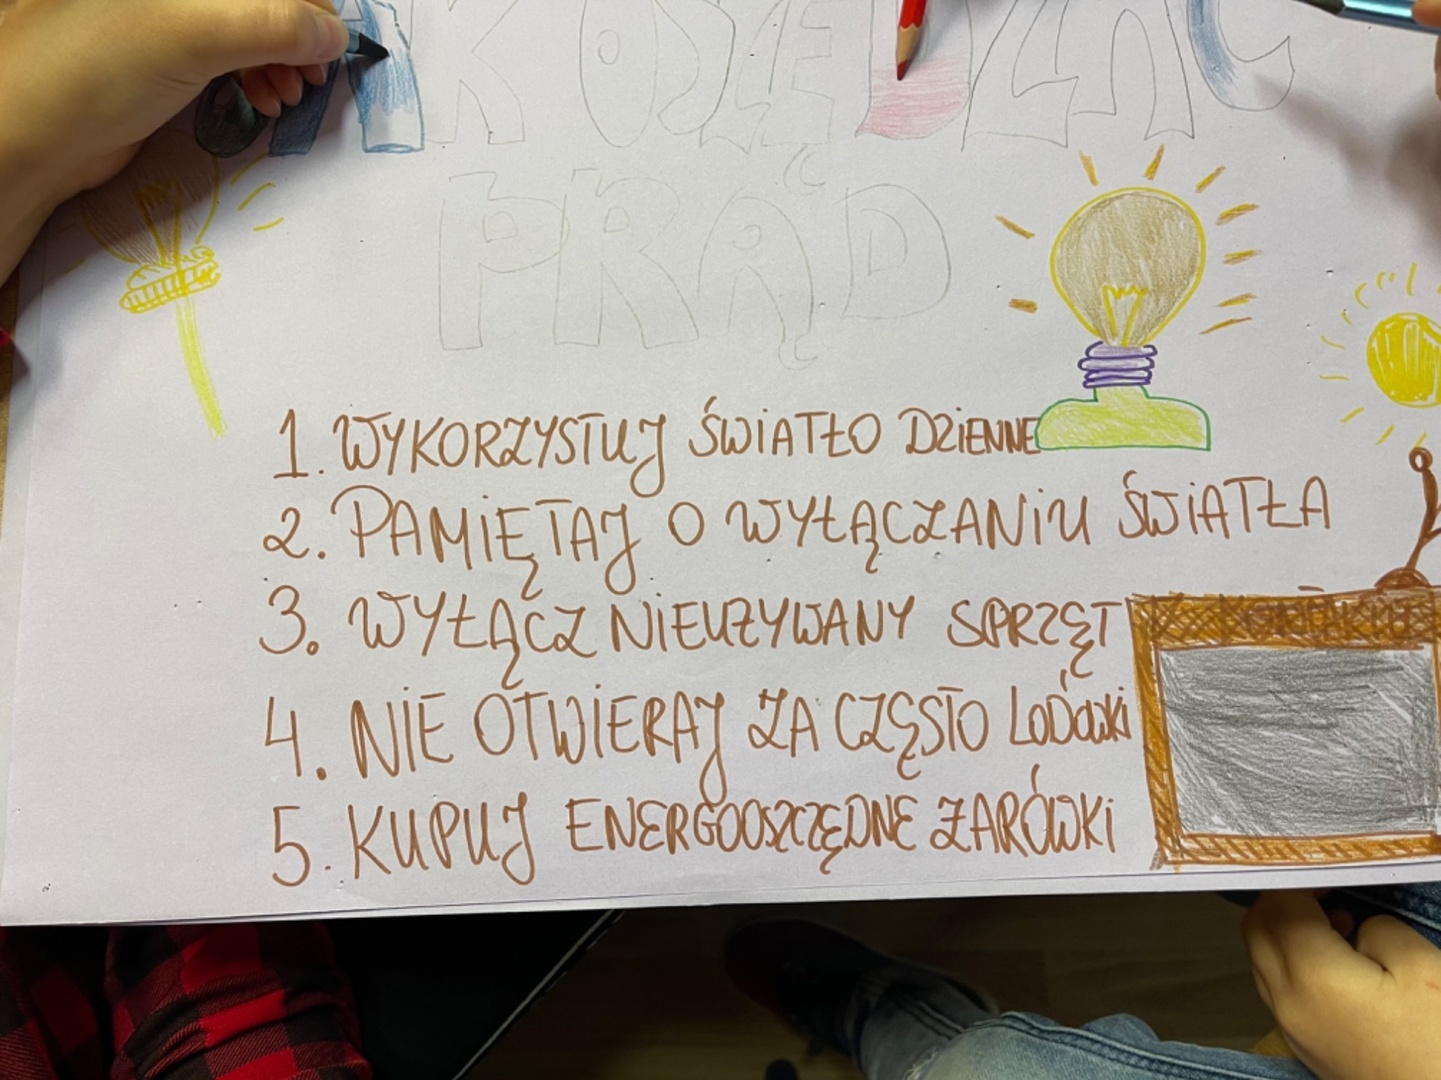 PRĄD
1. WYKORZYSTUJ ŚWIATŁO DZIENNE
2. PAMIĘTAJ O WYŁĄCZANIU ŚWIATŁA
3. WYŁĄCZ NIEUŻYWANY SPRZĘT
4. NIE OTWIERAJ ZA CZĘSTO LODÓWKI
5. KUPUJ ENERGOOSZCZĘDNE ŻARÓWKI